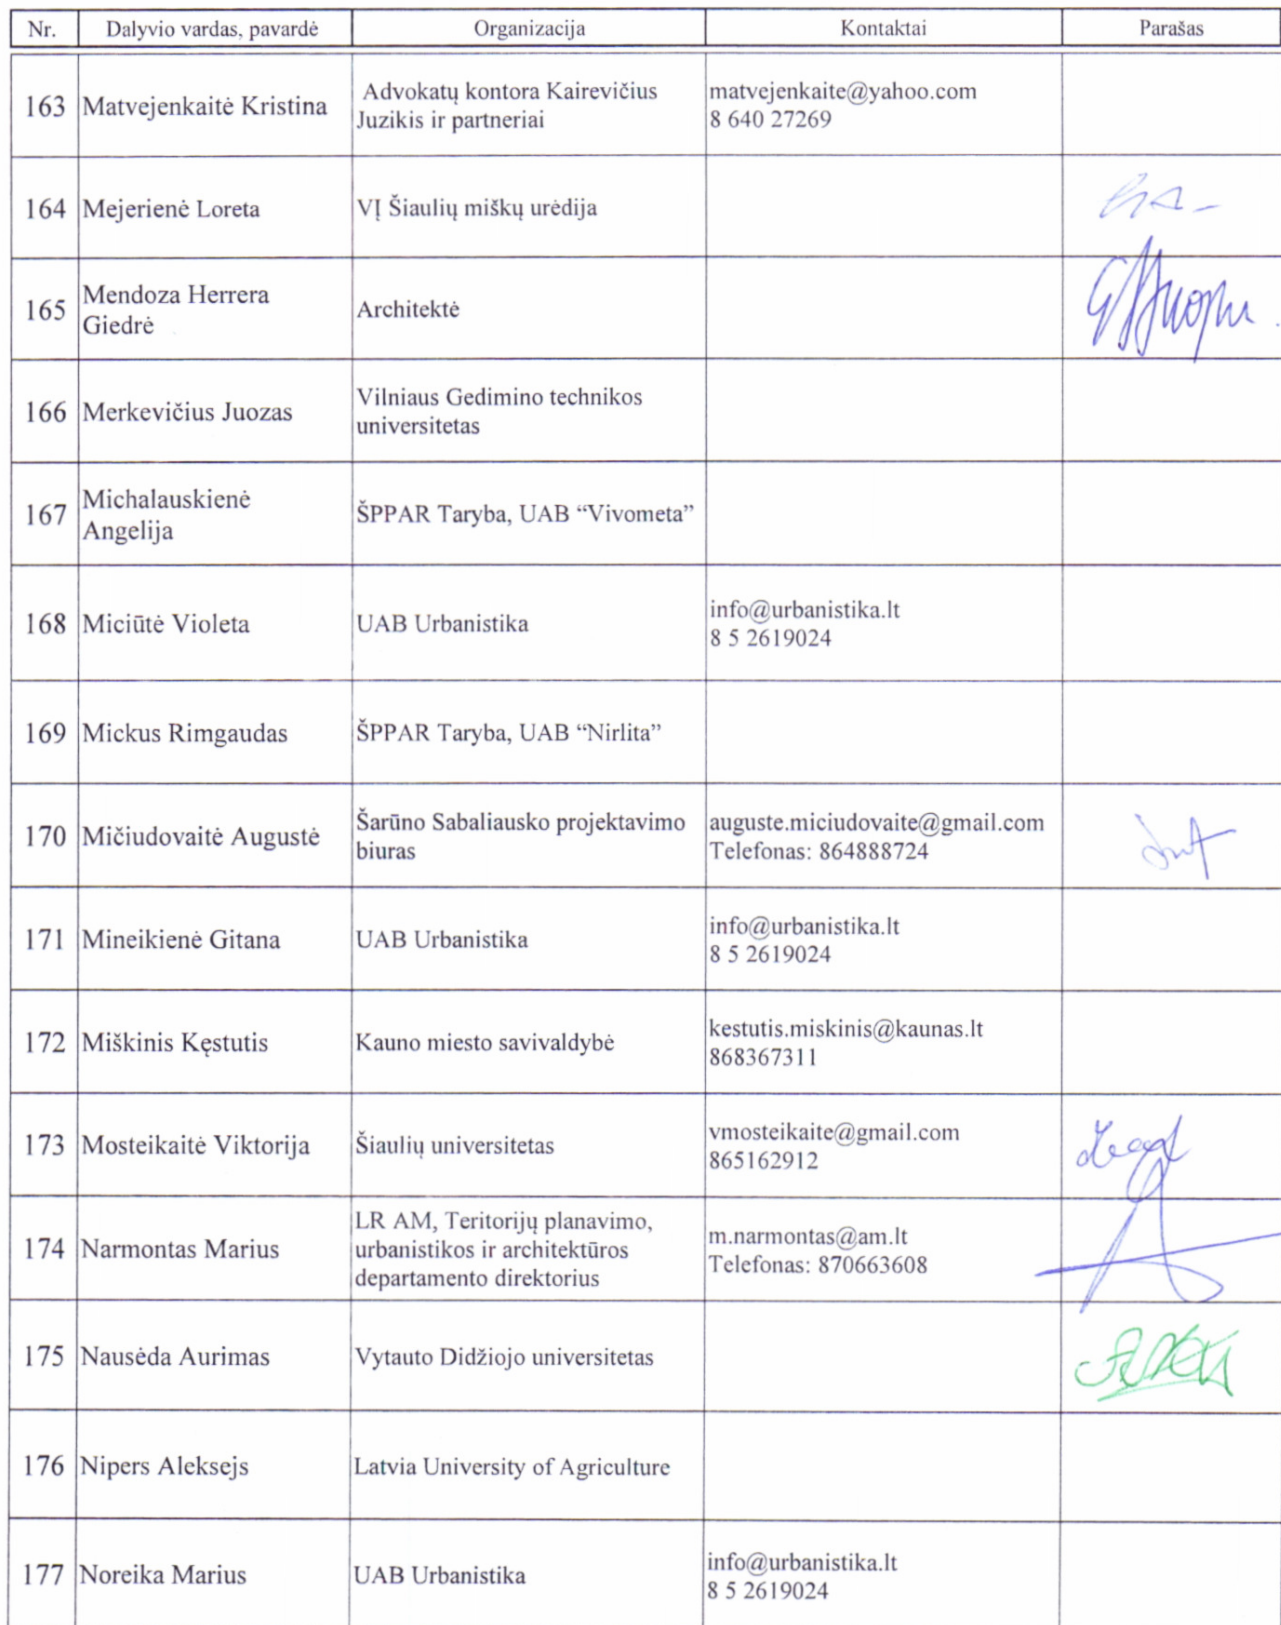 Nr. Dalyvio vardas, pavardė Organizacija Kontaktai Parašas
163 Matvejenkaitė Kristina
Advokatų kontora Kairevičius
Juzikis ir partneriai
matvejenkaite@yahoo.com
8 640 27269
164 Mejerienė Loreta
VĮ Šiaulių miškų urėdija
165 Mendoza Herrera
Giedrė
Architektė
166 Merkevičius Juozas
Vilniaus Gedimino technikos
universitetas
167 Michalauskienė
Angelija
ŠPPAR Taryba, UAB “Vivometa”
168 Miciūtė Violeta
UAB Urbanistika
info@urbanistika.lt
8 5 2619024
169 Mickus Rimgaudas
ŠPPAR Taryba, UAB “Nirlita”
170 Mičiudovaitė Augustė
Šarūno Sabaliausko projektavimo
biuras
auguste.miciudovaite@gmail.com
Telefonas: 864888724
171 Mineikienė Gitana
UAB Urbanistika
info@urbanistika.lt
8 5 2619024
172 Miškinis Kęstutis
Kauno miesto savivaldybė
kestutis.miskinis@kaunas.lt
868367311
173 Mosteikaitė Viktorija
Šiaulių universitetas
vmosteikaite@gmail.com
865162912
174 Narmontas Marius
LR AM, Teritorijų planavimo,
urbanistikos ir architektūros
departamento direktorius
m.narmontas@am.lt
Telefonas: 870663608
175 Nausėda Aurimas
Vytauto Didžiojo universitetas
176 Nipers Aleksejs
Latvia University of Agriculture
177 Noreika Marius
UAB Urbanistika
info@urbanistika.lt
8 5 2619024